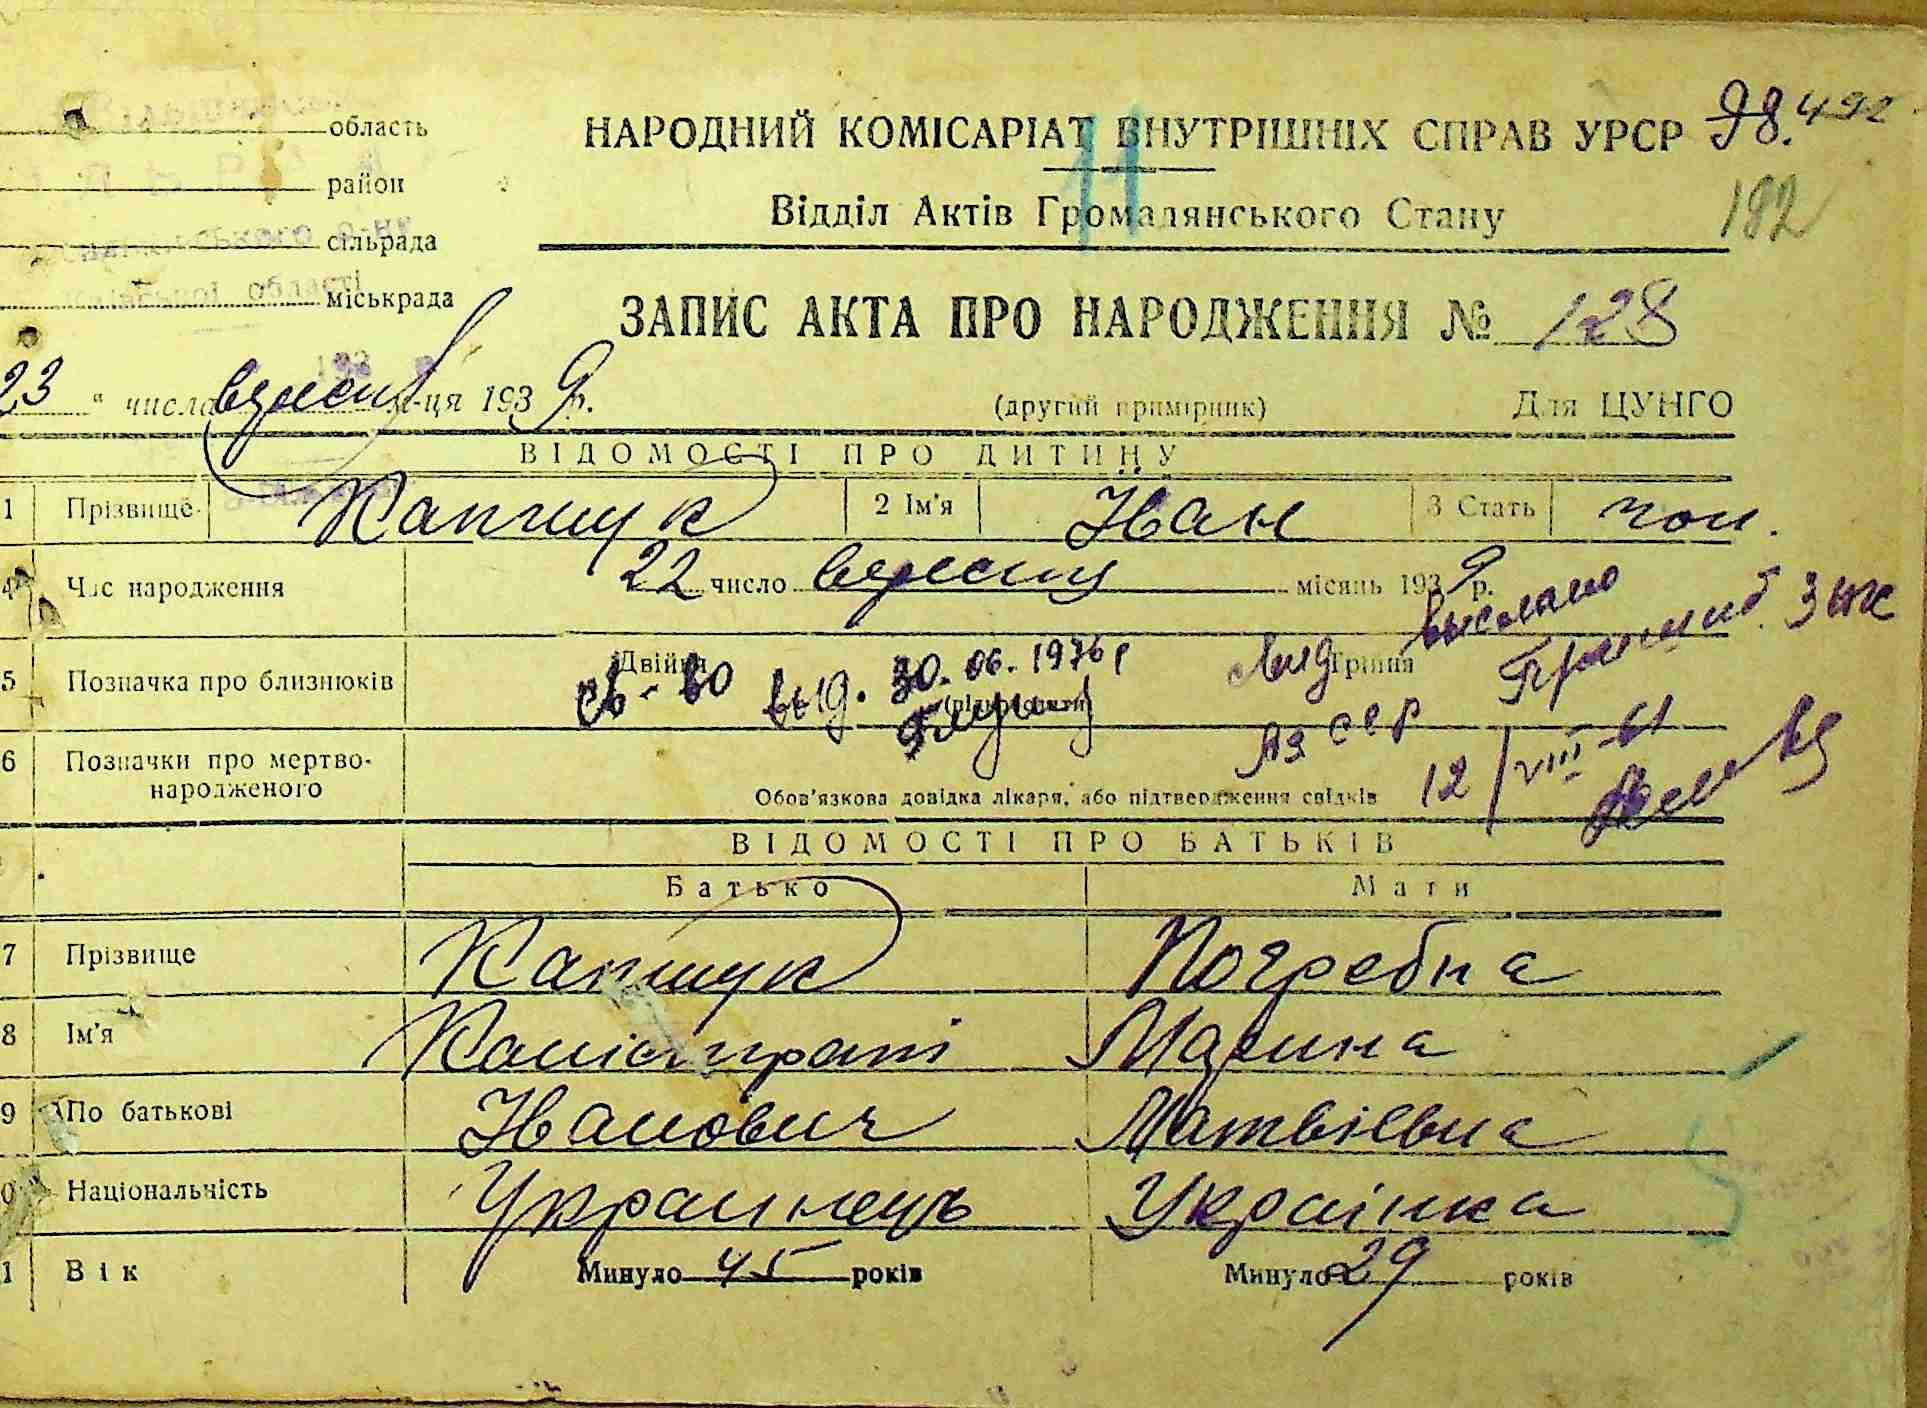 область
НАРОДНИЙ КОМІСАРІАТ ВНУТРІШНІХ СПРАВ УРСР 98. 492
район
11
182
Відділ Актів Громадянського Стану
сільрада
області
міськрада
ЗАПИС АКТА ПРО НАРОДЖЕННЯ № 128
193
23 " числа вересня м-ця 1939 р. (другий примірник) Для ЦУНГО
ВІДОМОСТІ ПРО ДИТИНУ
1 Прізвище Капшук 2 Ім'я Іван 3 Стать чол.
4 Час народження 22 число вересня місяць 1939 р.
выслано
5 Позначка про близнюків Двійня Трійня
св-во выд. 30.06.1976 г
(підкреслити)
Аз ССР
12/VIII-61
6 Позначки про мертвонародженого
Обов'язкова довідка лікаря, або підтвердження свідків
ВІДОМОСТІ ПРО БАТЬКІВ
Батько Мати
7 Прізвище Капшук Погребна
8 Ім'я Калістраті Марина
9 По батькові Іванович Матвіївна
0 Національність Украинець Украінка
1 Вік Минуло 45 років Минуло 29 років